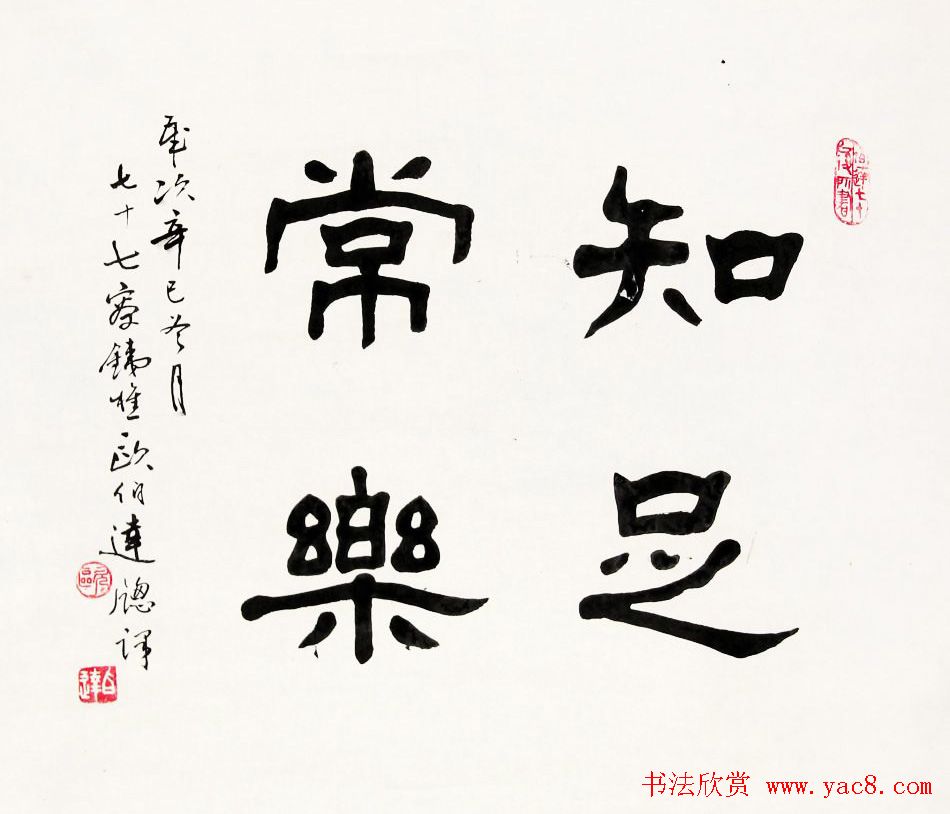 知足
常樂
歲次辛巳冬月
七十七叟鐵崖歐伯達
伯達
书法欣赏 www.yac8.com